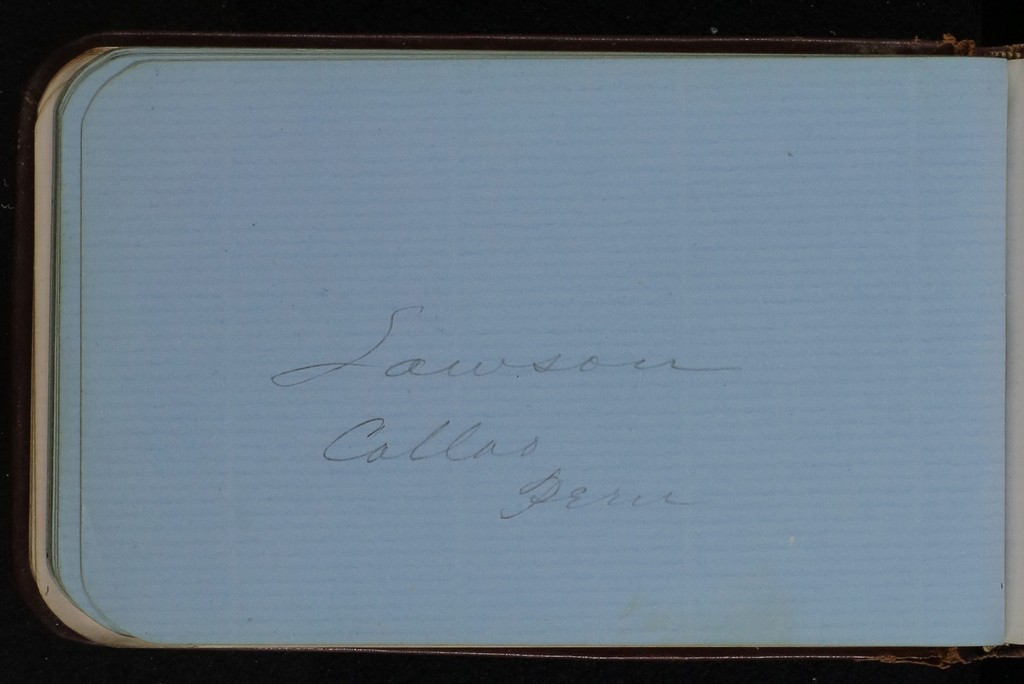 Lawson
Callao
Peru